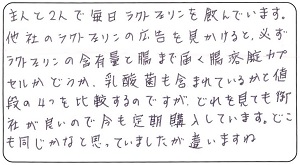 主人と2人で毎日ラクトフェリンを飲んでいます。
他社のラクトフェリンの広告を見かけると、必ず
ラクトフェリンの含有量と腸まで届く腸溶錠カプ
セルかどうか、乳酸菌も含まれているかと値
段の4つを比較するのですが、どれを見ても御
社が良いので今も定期購入しています。どこ
も同じかなと思っていましたが違いますね